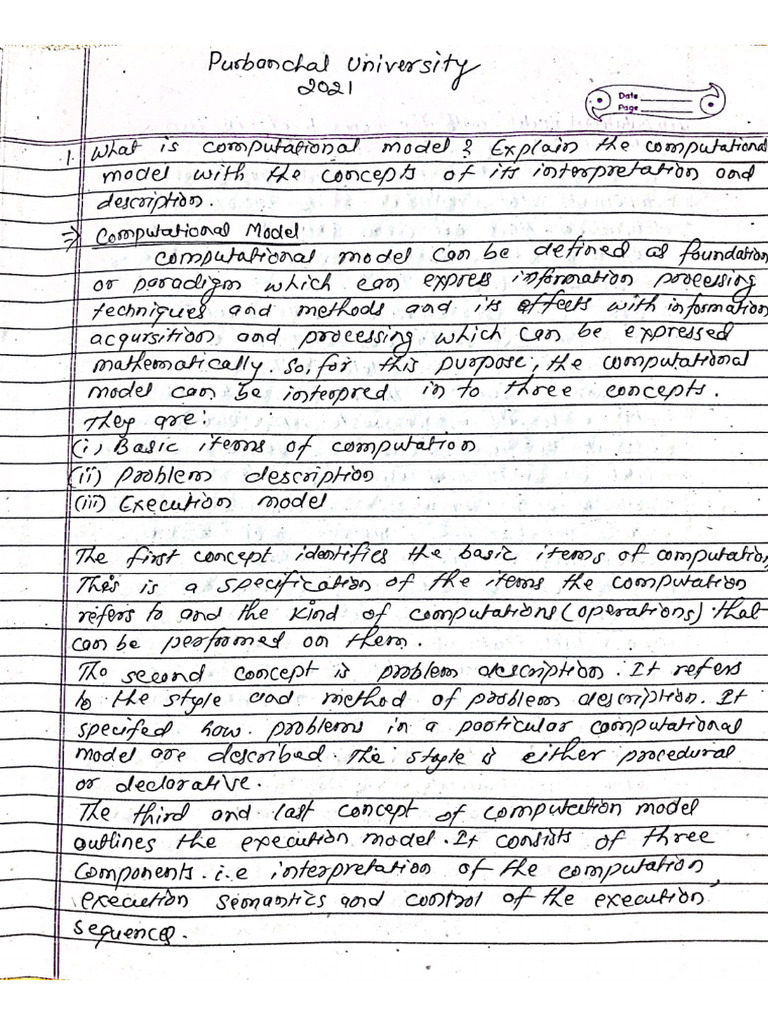 Purbanchal University
2021
Date
Page
1. What is computational model? Explain the computational
model with the concepts of its interpretation and
description.
⇒ Computational Model
Computational model can be defined as foundation
or paradigm which can express information processing
techniques and methods and its effects with information
acquisition and processing which can be expressed
mathematically. So, for this purpose, the computational
model can be interpred in to three concepts.
They are:
(i) Basic items of computation
(ii) Problem description
(iii) Execution model
The first concept identifies the basic items of computation,
This is a specification of the items the computation
refers to and the kind of computations (operations) that
can be performed on them.
The second concept is problem description. It refers
to the style and method of problem description. It
specifed how problems in a particular computational
model are described. The style is either procedural
or declarative.
The third and last concept of computation model
outlines the execution model. It consists of three
components. i.e interpretation of the computation,
execution semantics and control of the execution
sequence.